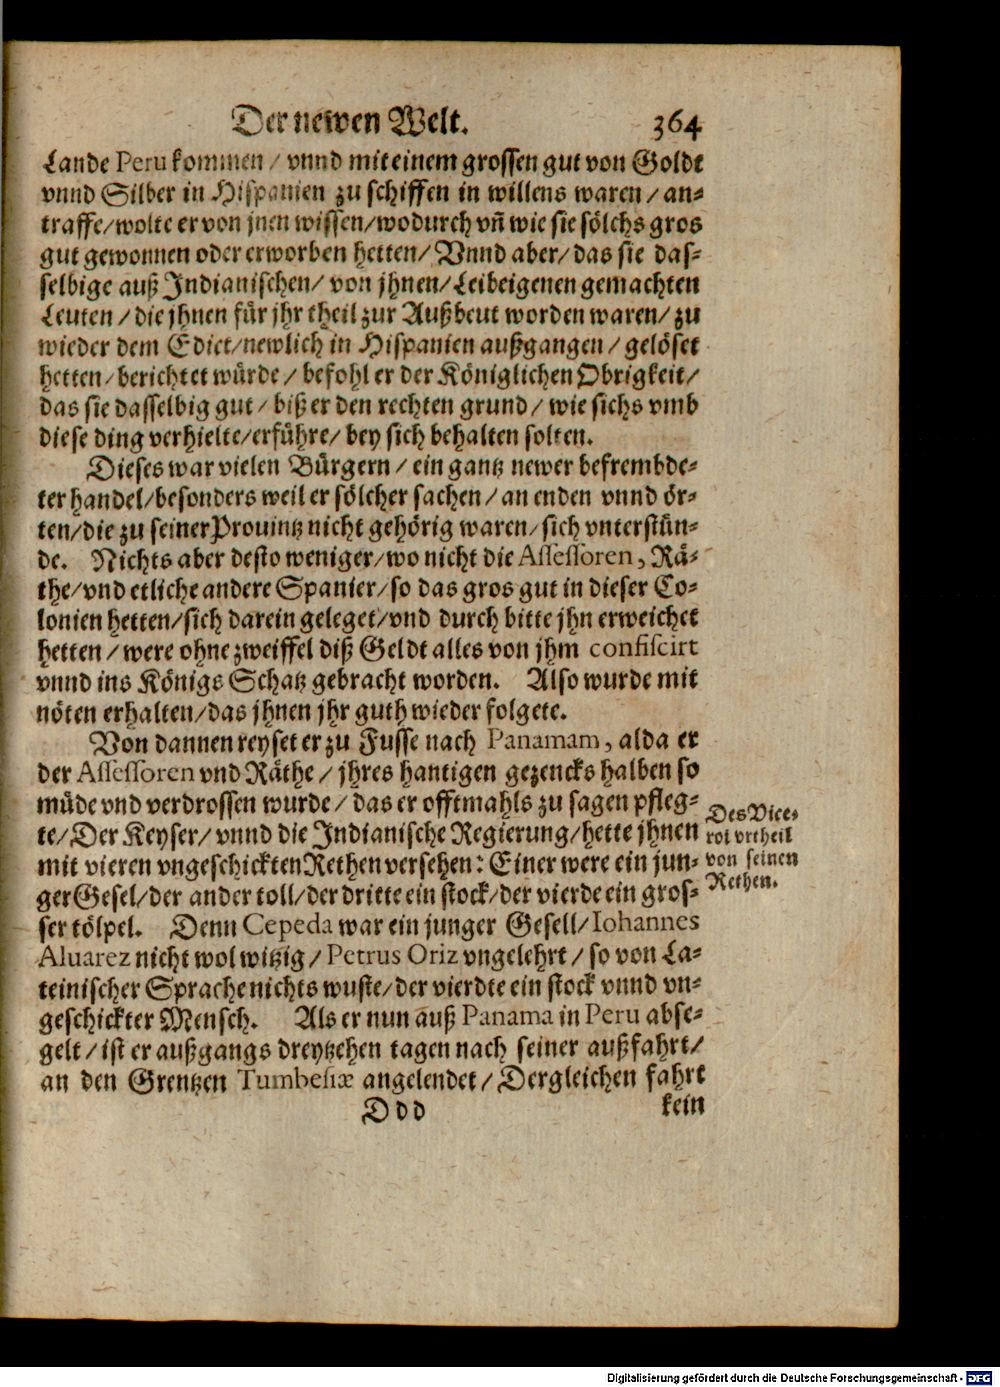 Der newen Welt. 364
Lande Peru kommen / vnnd mit einem grossen gut von Goldt
vnnd Silber in Hispanien zu schiffen in willens waren / an-
traffe/wolte er von jnen wissen/wodurch vñ wie sie sölchs gros
gut gewonnen oder erworben hetten/ Vnnd aber/das sie das-
selbige auß Indianischen/ von jhnen/Leibeigenen gemachten
Leuten / die jhnen für jhr theil zur Außbeut worden waren/ zu
wieder dem Edict/newlich in Hispanien außgangen / gelöset
hetten/berichtet würde / befohl er der Königlichen Obrigkeit/
das sie dasselbig gut / biß er den rechten grund / wie sichs vmb
diese ding verhielte/erführe/ bey sich behalten solten.
Dieses war vielen Bürgern / ein gantz newer befrembde-
ter handel/besonders weil er sölcher sachen / an enden vnnd ör-
ten/die zu seiner Prouintz nicht gehörig waren/sich vnterstün-
de. Nichts aber desto weniger/wo nicht die Assessoren, Rä-
the/vnd etliche andere Spanier/so das gros gut in dieser Co-
lonien hetten/sich darein geleget/vnd durch bitte jhn erweichet
hetten / were ohne zweiffel diß Geldt alles von jhm confiscirt
vnnd ins Königs Schatz gebracht worden. Also wurde mit
nöten erhalten/das jhnen jhr guth wieder folgete.
Von dannen reyset er zu Fusse nach Panamam, alda er
der Assessoren vnd Räthe / jhres hantigen gezencks halben so
müde vnd verdrossen wurde / das er offtmahls zu sagen pfleg-
te/Der Keyser/ vnnd die Indianische Regierung/hette jhnen
mit vieren vngeschickten Rethen versehen: Einer were ein jun-
ger Gesel/der ander toll/der dritte ein stock/der vierde ein gros-
ser tölpel. Denn Cepeda war ein junger Gesell/Iohannes
Aluarez nicht wol witzig / Petrus Oriz vngelehrt / so von La-
teinischer Sprache nichts wuste/der vierdte ein stock vnnd vn-
geschickter Mensch. Als er nun auß Panama in Peru abse-
gelt / ist er außgangs dreytzehen tagen nach seiner außfahrt/
an den Grentzen Tumbesiæ angelendet / Dergleichen fahrt
Ddd kein
Des Vice-
roi vrtheil
von seinen
Rethen.
Digitalisierung gefördert durch die Deutsche Forschungsgemeinschaft - DFG